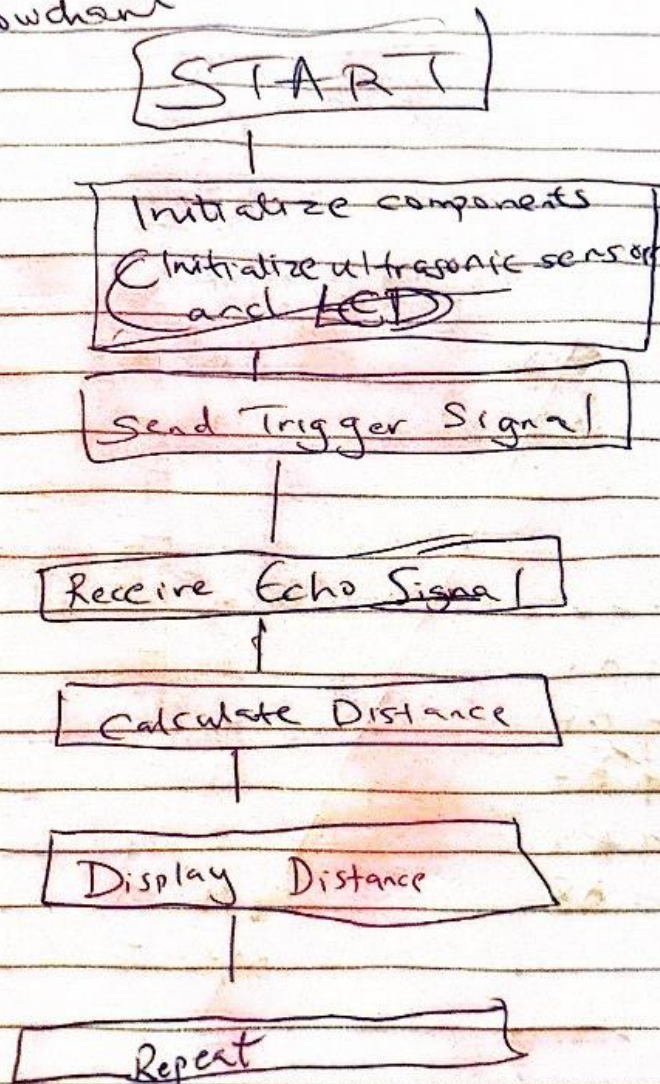 START
Initialize components
(Initialize ultrasonic sensor
and LCD)
Send Trigger Signal
Receive Echo Signal
Calculate Distance
Display Distance
Repeat